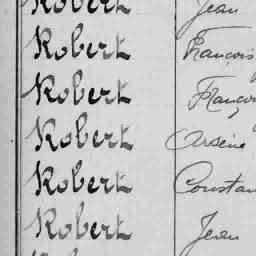 Robert Jean
Robert François
Robert François
Robert Arsène
Robert Constan
Robert Jean